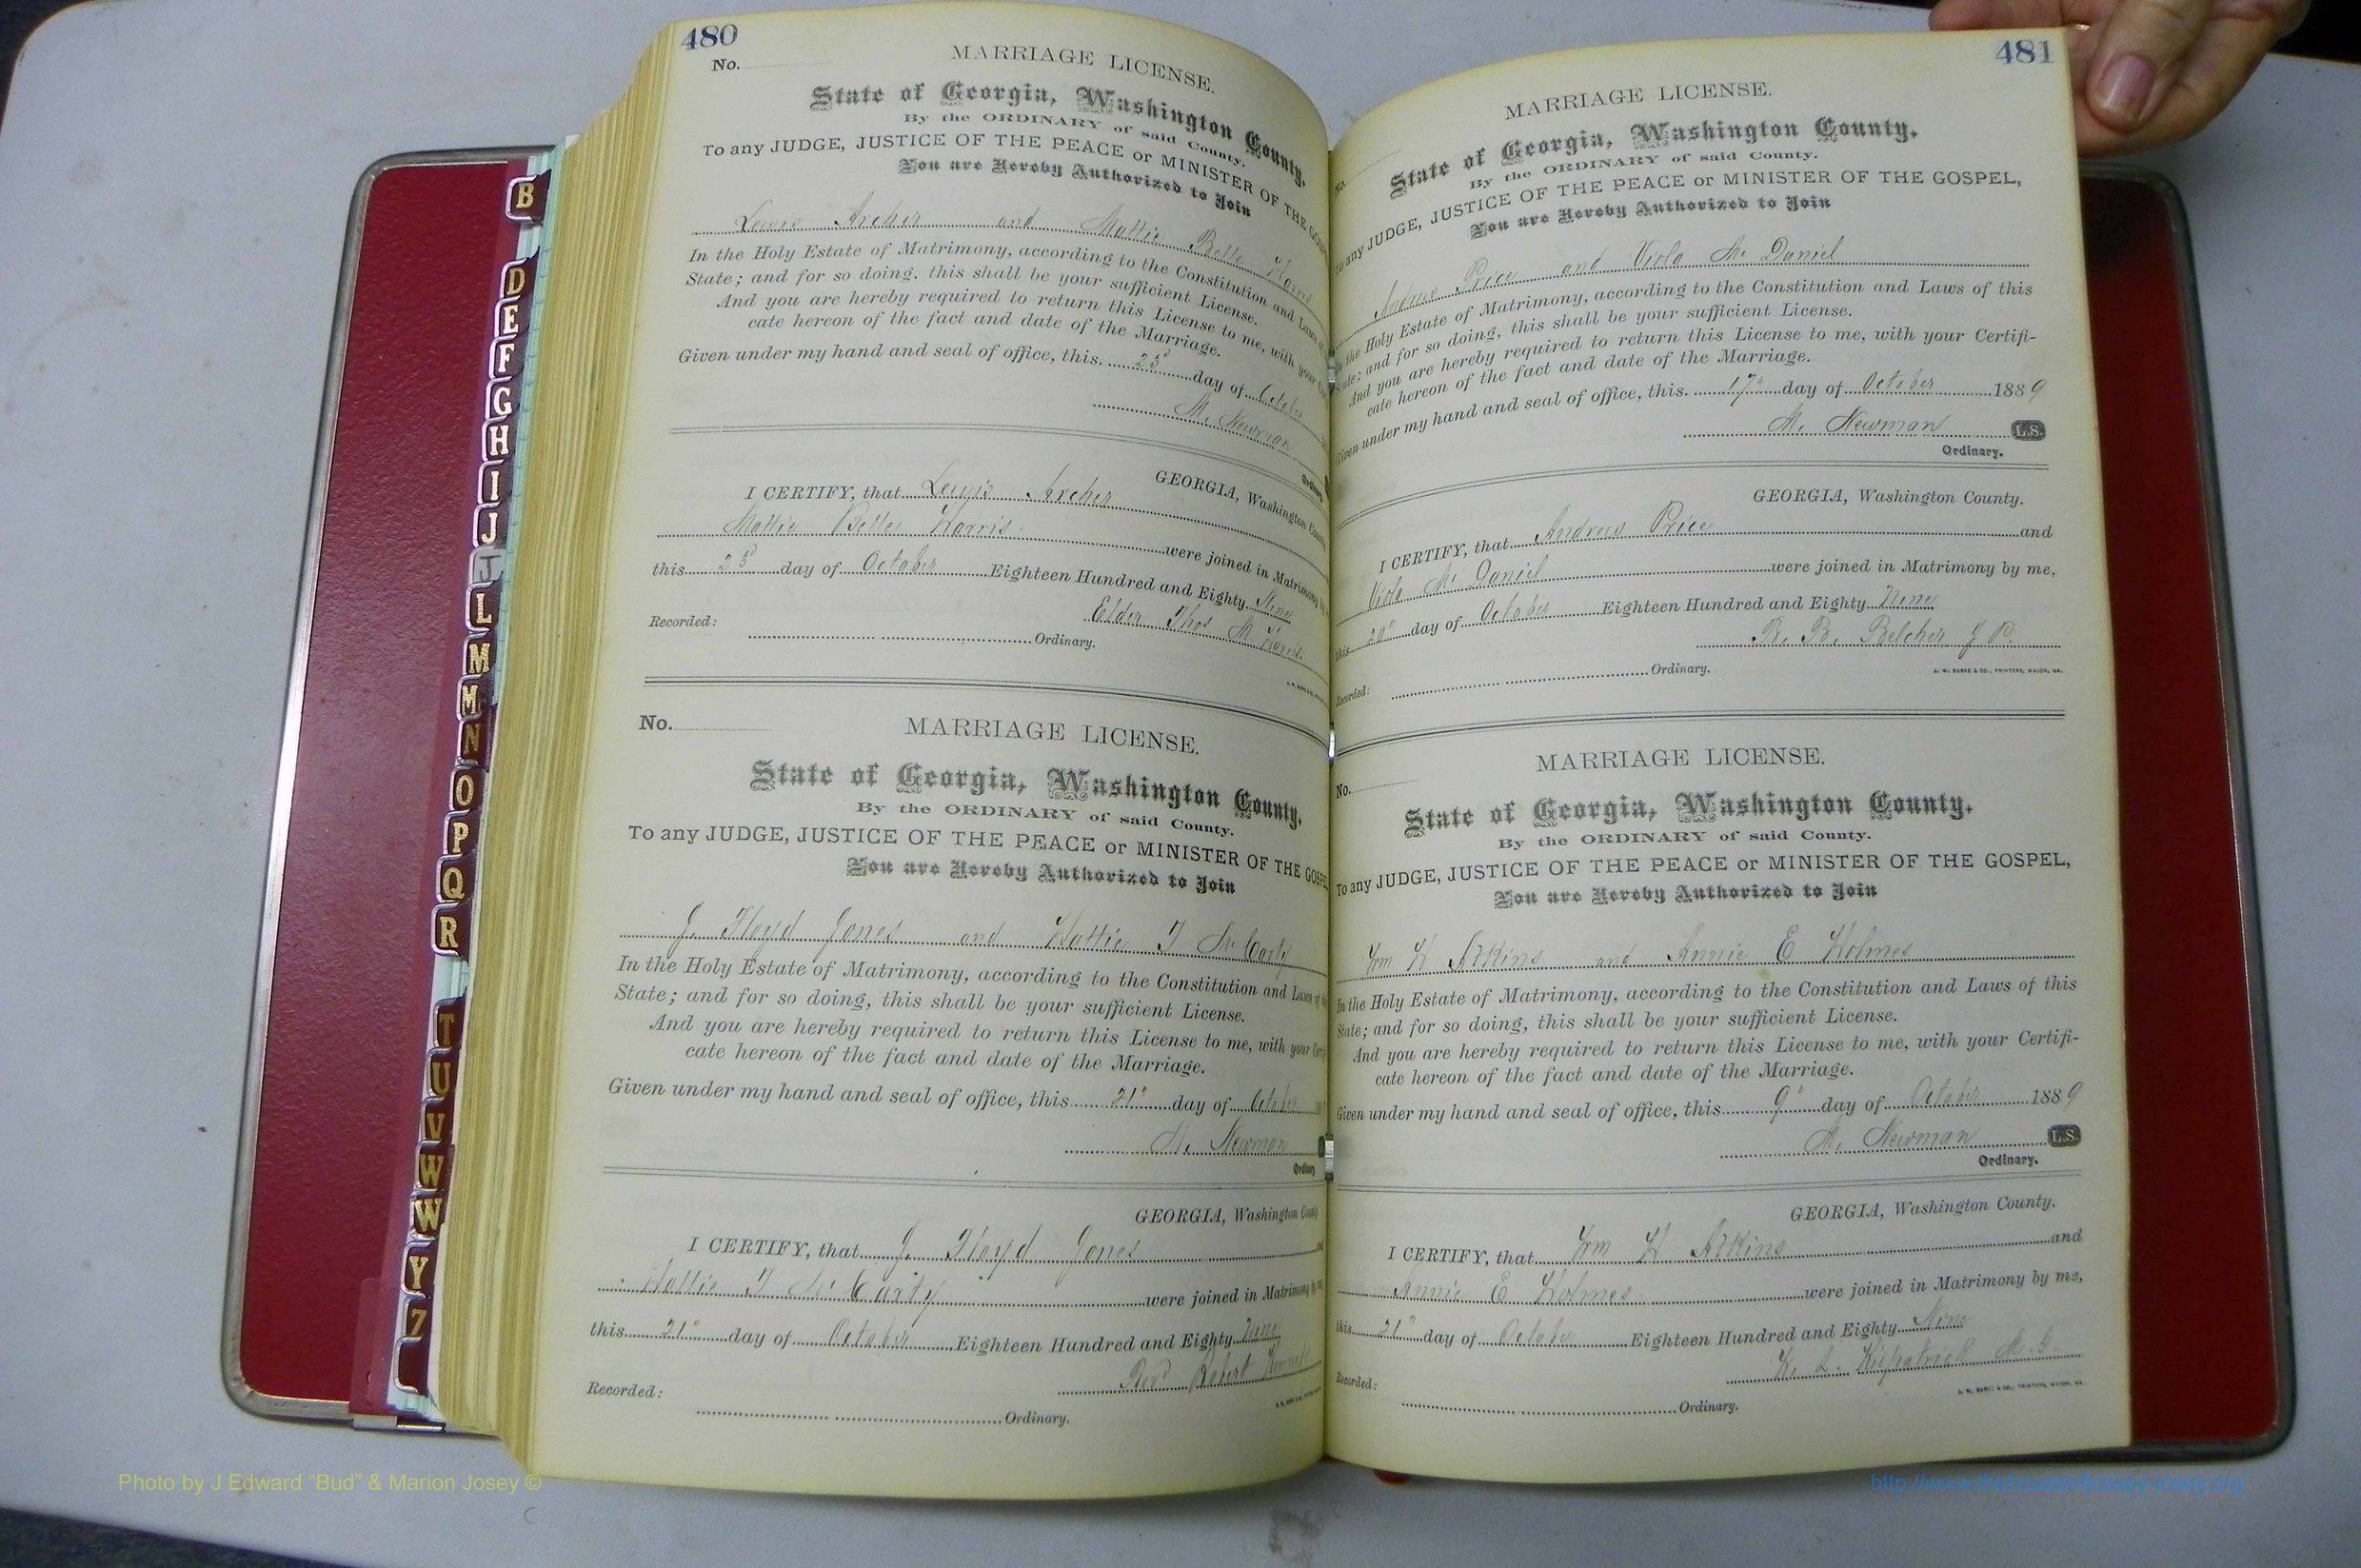 480
No.
MARRIAGE LICENSE.
State of Georgia, Washington County.
By the ORDINARY of said County.
To any JUDGE, JUSTICE OF THE PEACE or MINISTER OF THE GOSP
You are Hereby Authorized to Join
Lewis Archer and Mattie Belle Harris
In the Holy Estate of Matrimony, according to the Constitution and Laws of
State; and for so doing, this shall be your sufficient License.
And you are hereby required to return this License to me, with your
cate hereon of the fact and date of the Marriage.
Given under my hand and seal of office, this day of October
M. Newman
Ordinary
GEORGIA, Washington County
I CERTIFY, that Lewis Archer
Mattie Belle Harris were joined in Matrimony by
this day of October Eighteen Hundred and Eighty Nine
Elder Thos M Harris
Recorded: Ordinary.
No.
MARRIAGE LICENSE.
State of Georgia, Washington County.
By the ORDINARY of said County.
To any JUDGE, JUSTICE OF THE PEACE or MINISTER OF THE GOSPEL
You are Hereby Authorized to Join
J. Floyd Jones and Hattie T McCarty
In the Holy Estate of Matrimony, according to the Constitution and Laws of
State; and for so doing, this shall be your sufficient License.
And you are hereby required to return this License to me, with your Certi
cate hereon of the fact and date of the Marriage.
Given under my hand and seal of office, this 21" day of October
M. Newman
Ordinary
GEORGIA, Washington County
I CERTIFY, that J. Floyd Jones
Hattie T McCarty were joined in Matrimony by me
this 21" day of October Eighteen Hundred and Eighty Nine
Revd Robert
Recorded: Ordinary.
481
No.
MARRIAGE LICENSE.
State of Georgia, Washington County.
By the ORDINARY of said County.
To any JUDGE, JUSTICE OF THE PEACE or MINISTER OF THE GOSPEL,
You are Hereby Authorized to Join
Andrew Price and Viola McDaniel
the Holy Estate of Matrimony, according to the Constitution and Laws of this
State; and for so doing, this shall be your sufficient License.
And you are hereby required to return this License to me, with your Certifi-
cate hereon of the fact and date of the Marriage.
Given under my hand and seal of office, this 17" day of October 1889
M. Newman L.S.
Ordinary.
GEORGIA, Washington County.
I CERTIFY, that Andrew Price and
Viola McDaniel were joined in Matrimony by me,
this 20" day of October Eighteen Hundred and Eighty Nine
R. B. Belcher J P.
Recorded: Ordinary.
J. W. BURKE & CO., PRINTERS, MACON, GA.
MARRIAGE LICENSE.
No.
State of Georgia, Washington County.
By the ORDINARY of said County.
To any JUDGE, JUSTICE OF THE PEACE or MINISTER OF THE GOSPEL,
You are Hereby Authorized to Join
Wm H Atkins and Annie E Holmes
In the Holy Estate of Matrimony, according to the Constitution and Laws of this
State; and for so doing, this shall be your sufficient License.
And you are hereby required to return this License to me, with your Certifi-
cate hereon of the fact and date of the Marriage.
Given under my hand and seal of office, this 9" day of October 1889
M. Newman L.S.
Ordinary.
GEORGIA, Washington County.
I CERTIFY, that Wm H Atkins and
Annie E Holmes were joined in Matrimony by me,
this 21" day of October Eighteen Hundred and Eighty Nine
W. L. Kilpatrick M.G.
Recorded: Ordinary.
J. W. BURKE & CO., PRINTERS, MACON, GA.
B
D
E
F
G
H
I
J
J
L
M
M
N
O
P
Q
R
T
U
V
W
W
Y
Z
Photo by J Edward “Bud” & Marion Josey ©